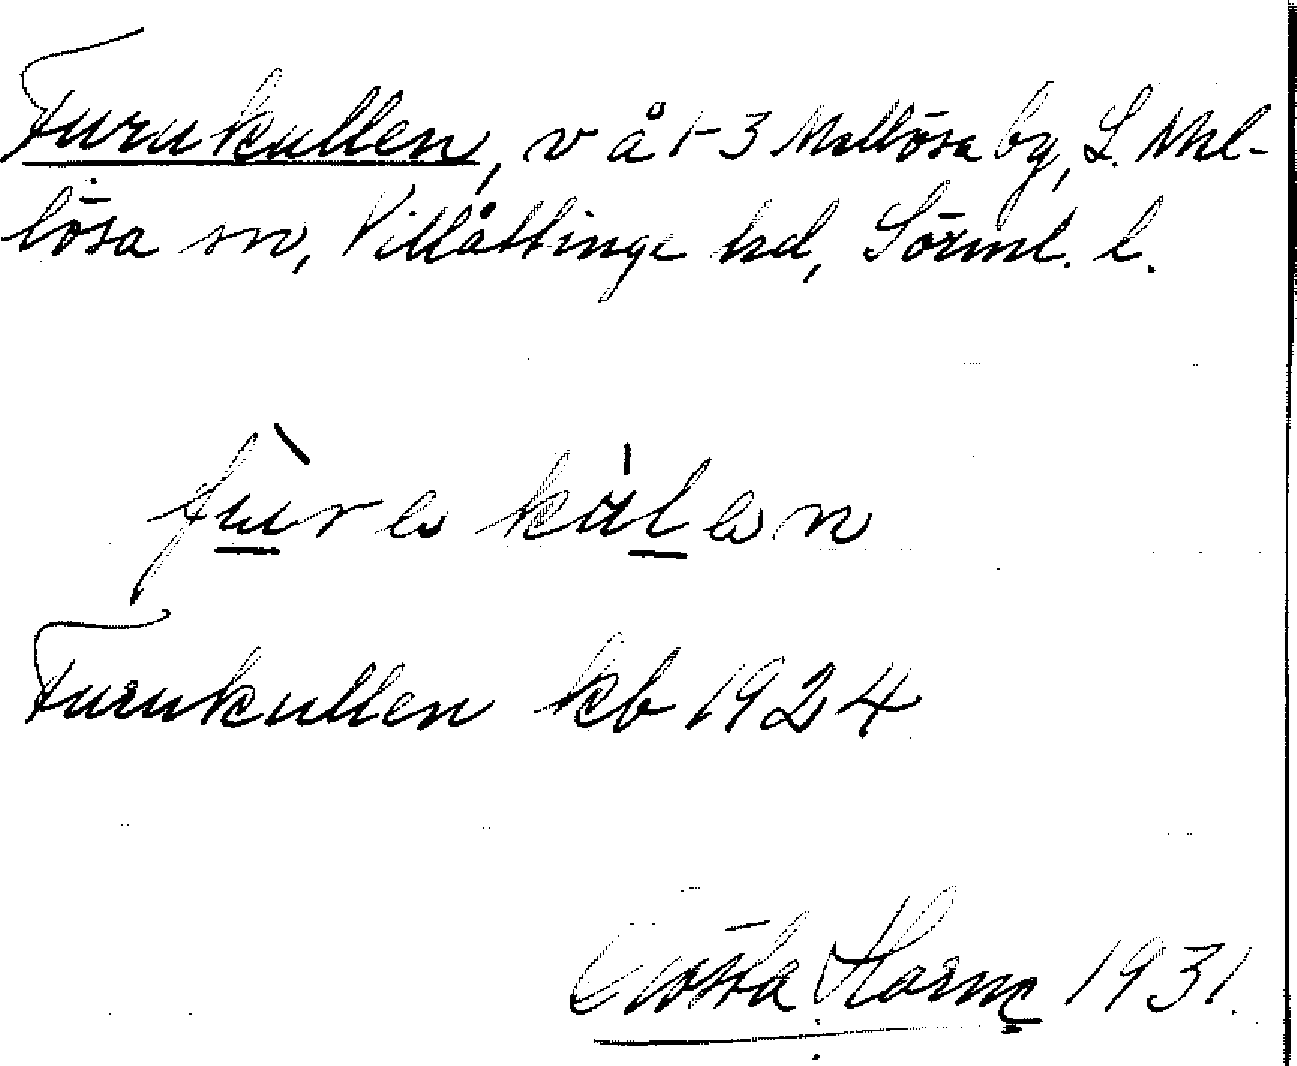 Furukullen, v å 1-3 Mellösa by, L. Mel-
lösa sn, Villåttinge hd, Sörml. l.
fùrekúlen
Furukullen kb 1924
Gösta Harme 1931.